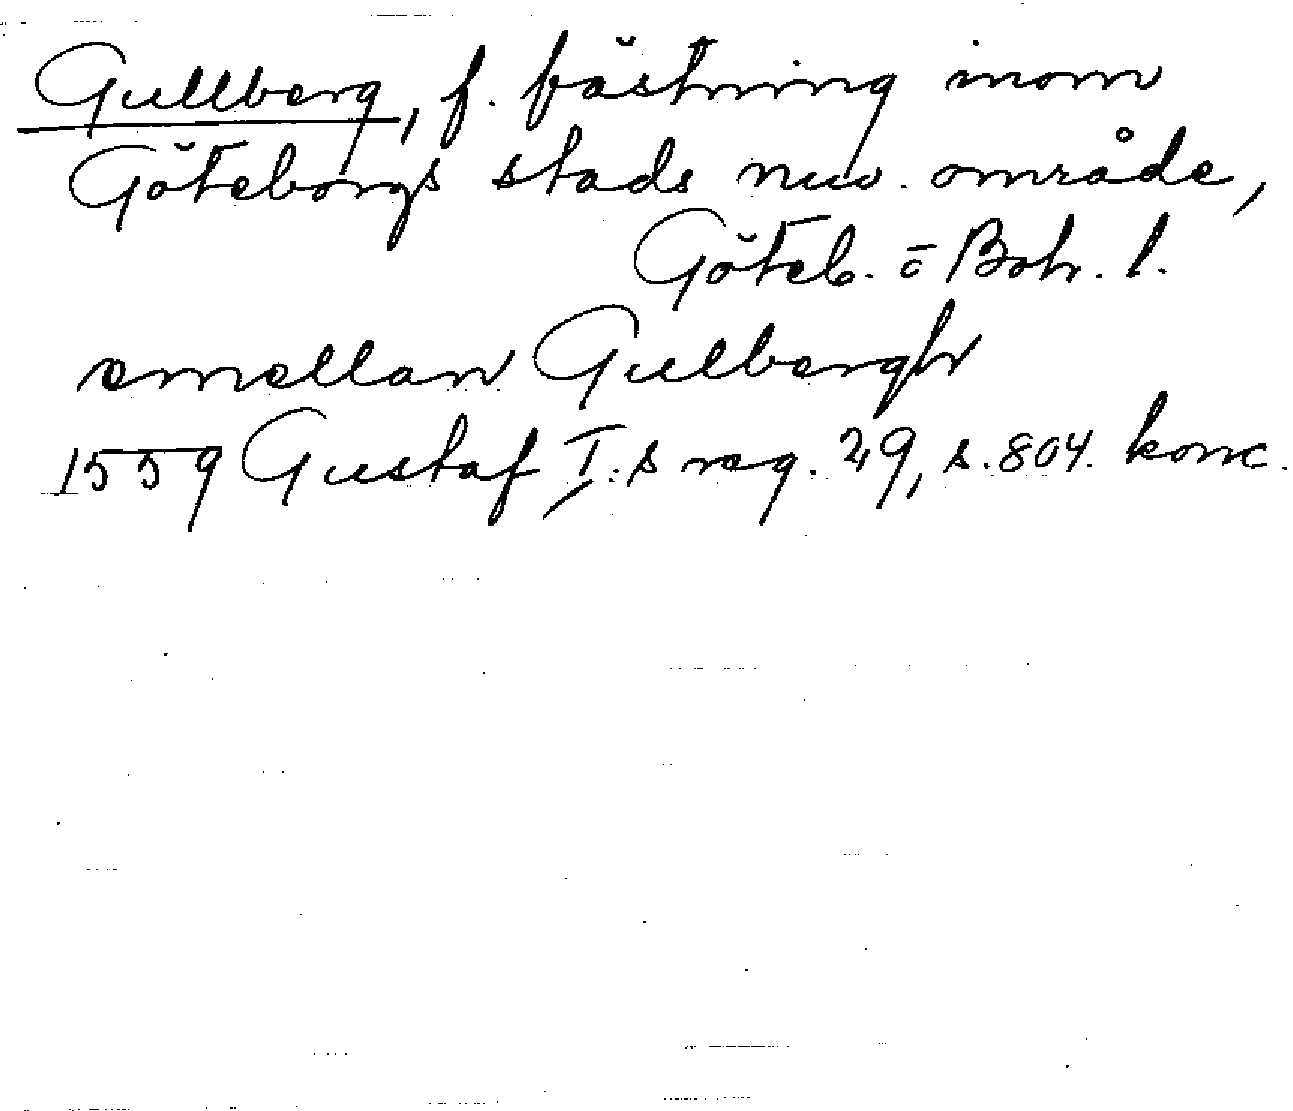 Gullberg, f. fästning inom
Göteborgs stads nuv. område,
Göteb. o Boh. l.
emellan Gulbergh
1559 Gustaf I. s reg. 29, s. 804. konc.